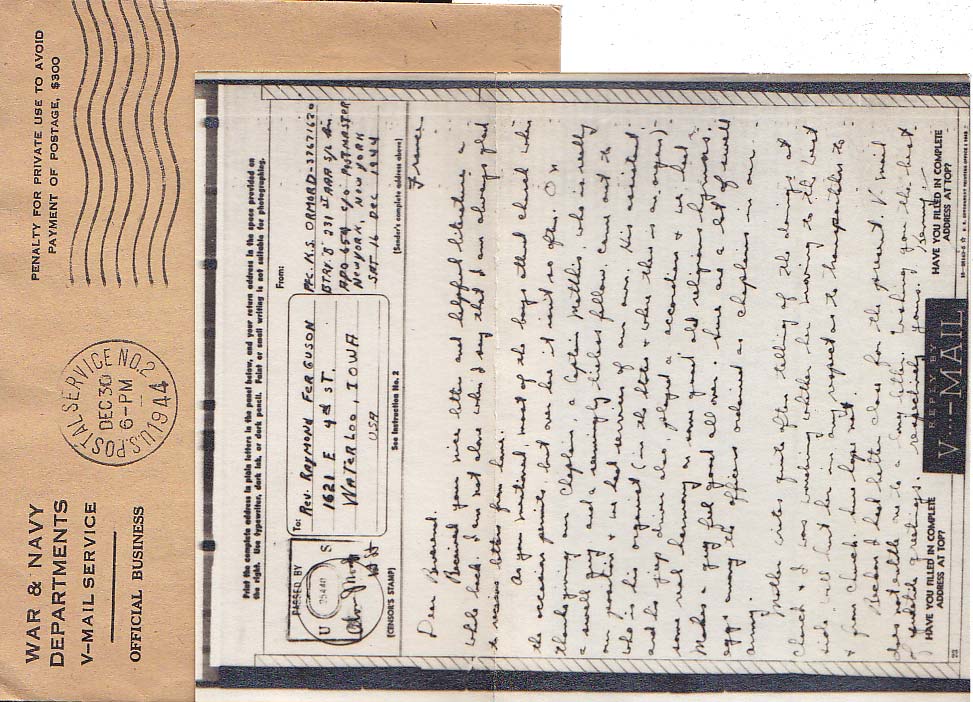 WAR & NAVY
DEPARTMENTS
V–MAIL SERVICE
OFFICIAL BUSINESS
U.S. POSTAL SERVICE NO. 2
DEC 30
6-PM
1944
PENALTY FOR PRIVATE USE TO AVOID
PAYMENT OF POSTAGE, $300
Print the complete address in plain letters in the panel below, and your return address in the space provided on
the right. Use typewriter, dark ink, or dark pencil. Faint or small writing is not suitable for photographing.
PASSED BY
U S
(CENSOR'S STAMP)
To:
Rev. RAYMOND FERGUSON
1621 E 4th ST
WATERLOO, IOWA
USA
See Instruction No. 2
From:
PFC. K.S. ORMORD-37671620
BTRY. B 231
APO 654 c/o POSTMASTER
NEW YORK, NEW YORK
SAT 16 DEC 1944
(Sender's complete address above)
France
Dear Reverend.
Received your nice letter and helpful literature a
while back. I am not alone when I say that I am always glad
to receive letters from home.
As you mentioned, most of the boys attend church when
the occasion permits, but over here it isn't so often. On
Thanksgiving our Chaplain, a Captain Matthis, who is really
a swell guy and a seemingly tireless fellow, came out to
our position & we had services of our own. His assistant
who is his organist (in the States & where there is an organ)-
and his jeep driver also, played a accordian & we had
some real harmony on some good old religious hymns.
Makes a guy feel good all over. There are a lot of swell
eggs among the officers ordained as chaplains in our
army.
Mother writes quite often telling of the doings at
church & I was wondering whether her moving to the west
side will hurt her in any respect as to transportation to
& from church. Sure hope not.
Reckon I had better close for the present. V mail
does not enable one to a long letter. Wishing you the best
of yuletide greetings. respectively yours.
HAVE YOU FILLED IN COMPLETE
ADDRESS AT TOP?
REPLY BY
V···—MAIL
HAVE YOU FILLED IN COMPLETE
ADDRESS AT TOP?